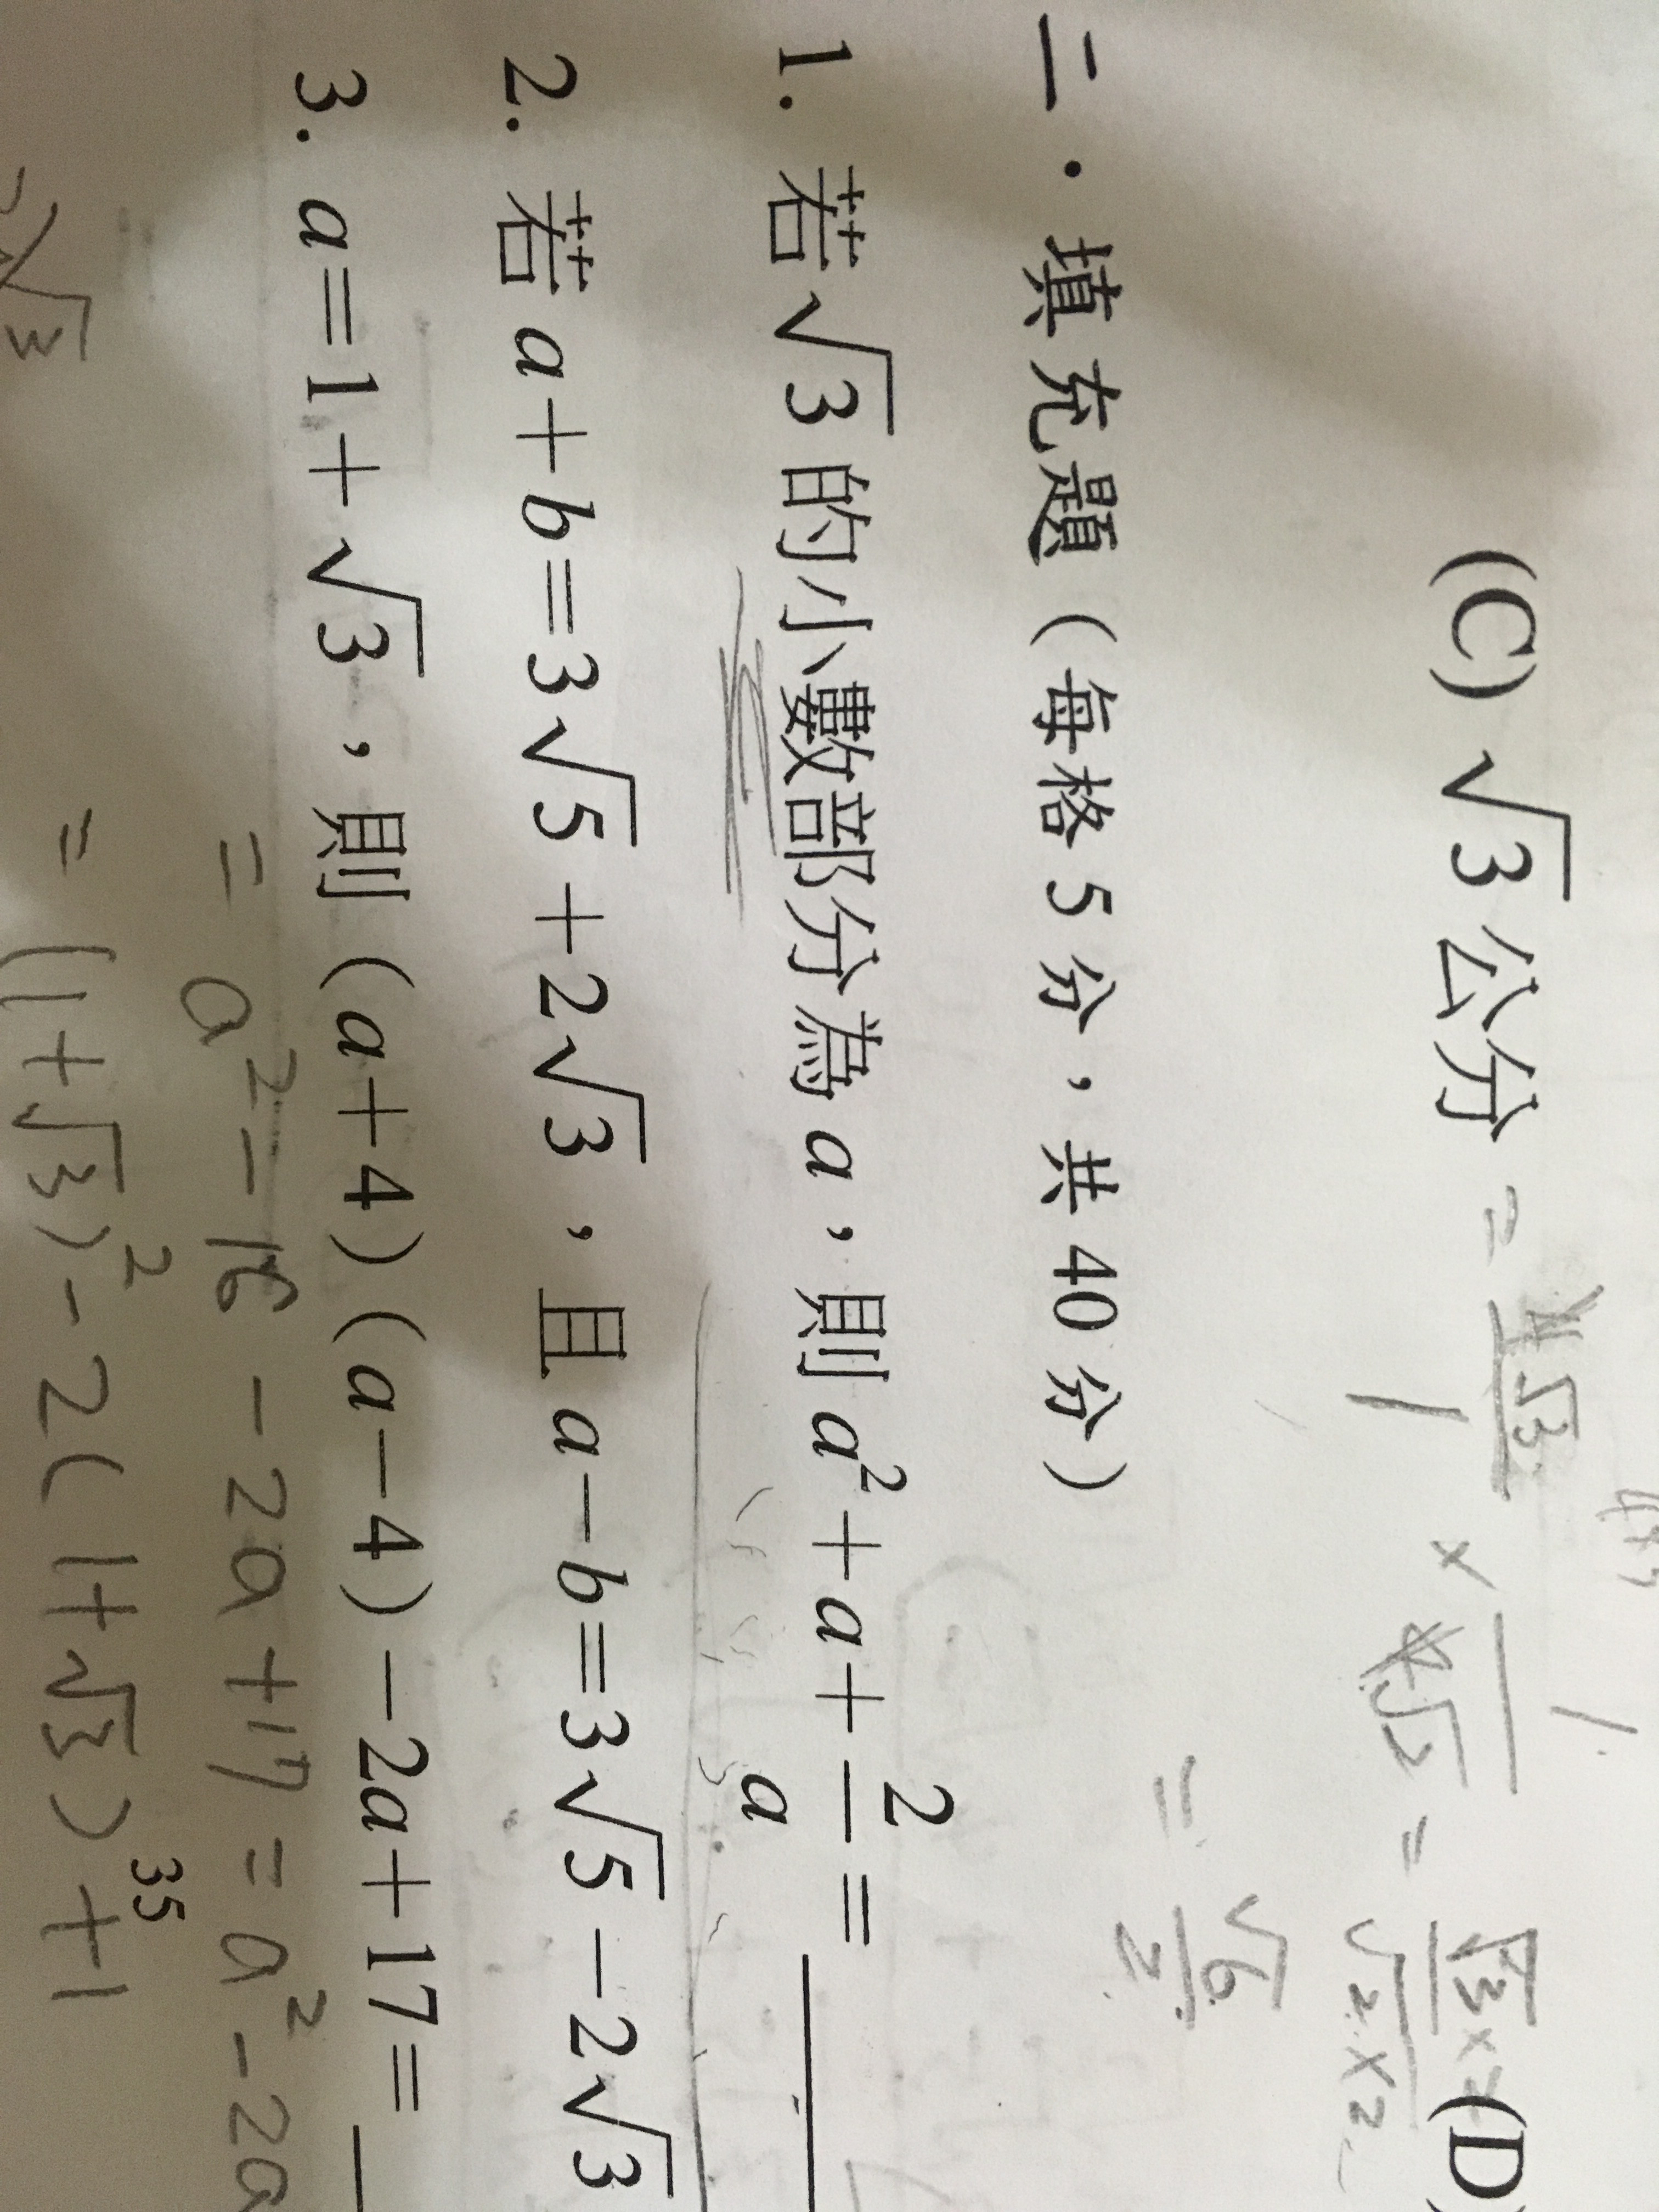 (C) √3公分 = 4√3/1 × 1/4√2 = √3×2/√2×2 (D)
= √6/2
二.填充題（每格5分，共40分）
1. 若√3的小數部分為a，則a²+a+2/a=
2. 若a+b=3√5+2√3，且a−b=3√5−2√3
3. a=1+√3，則(a+4)(a−4)−2a+17=
= a²-16-2a+17 = a²-2a
= (1+√3)²-2(1+√3)+1
35
√3